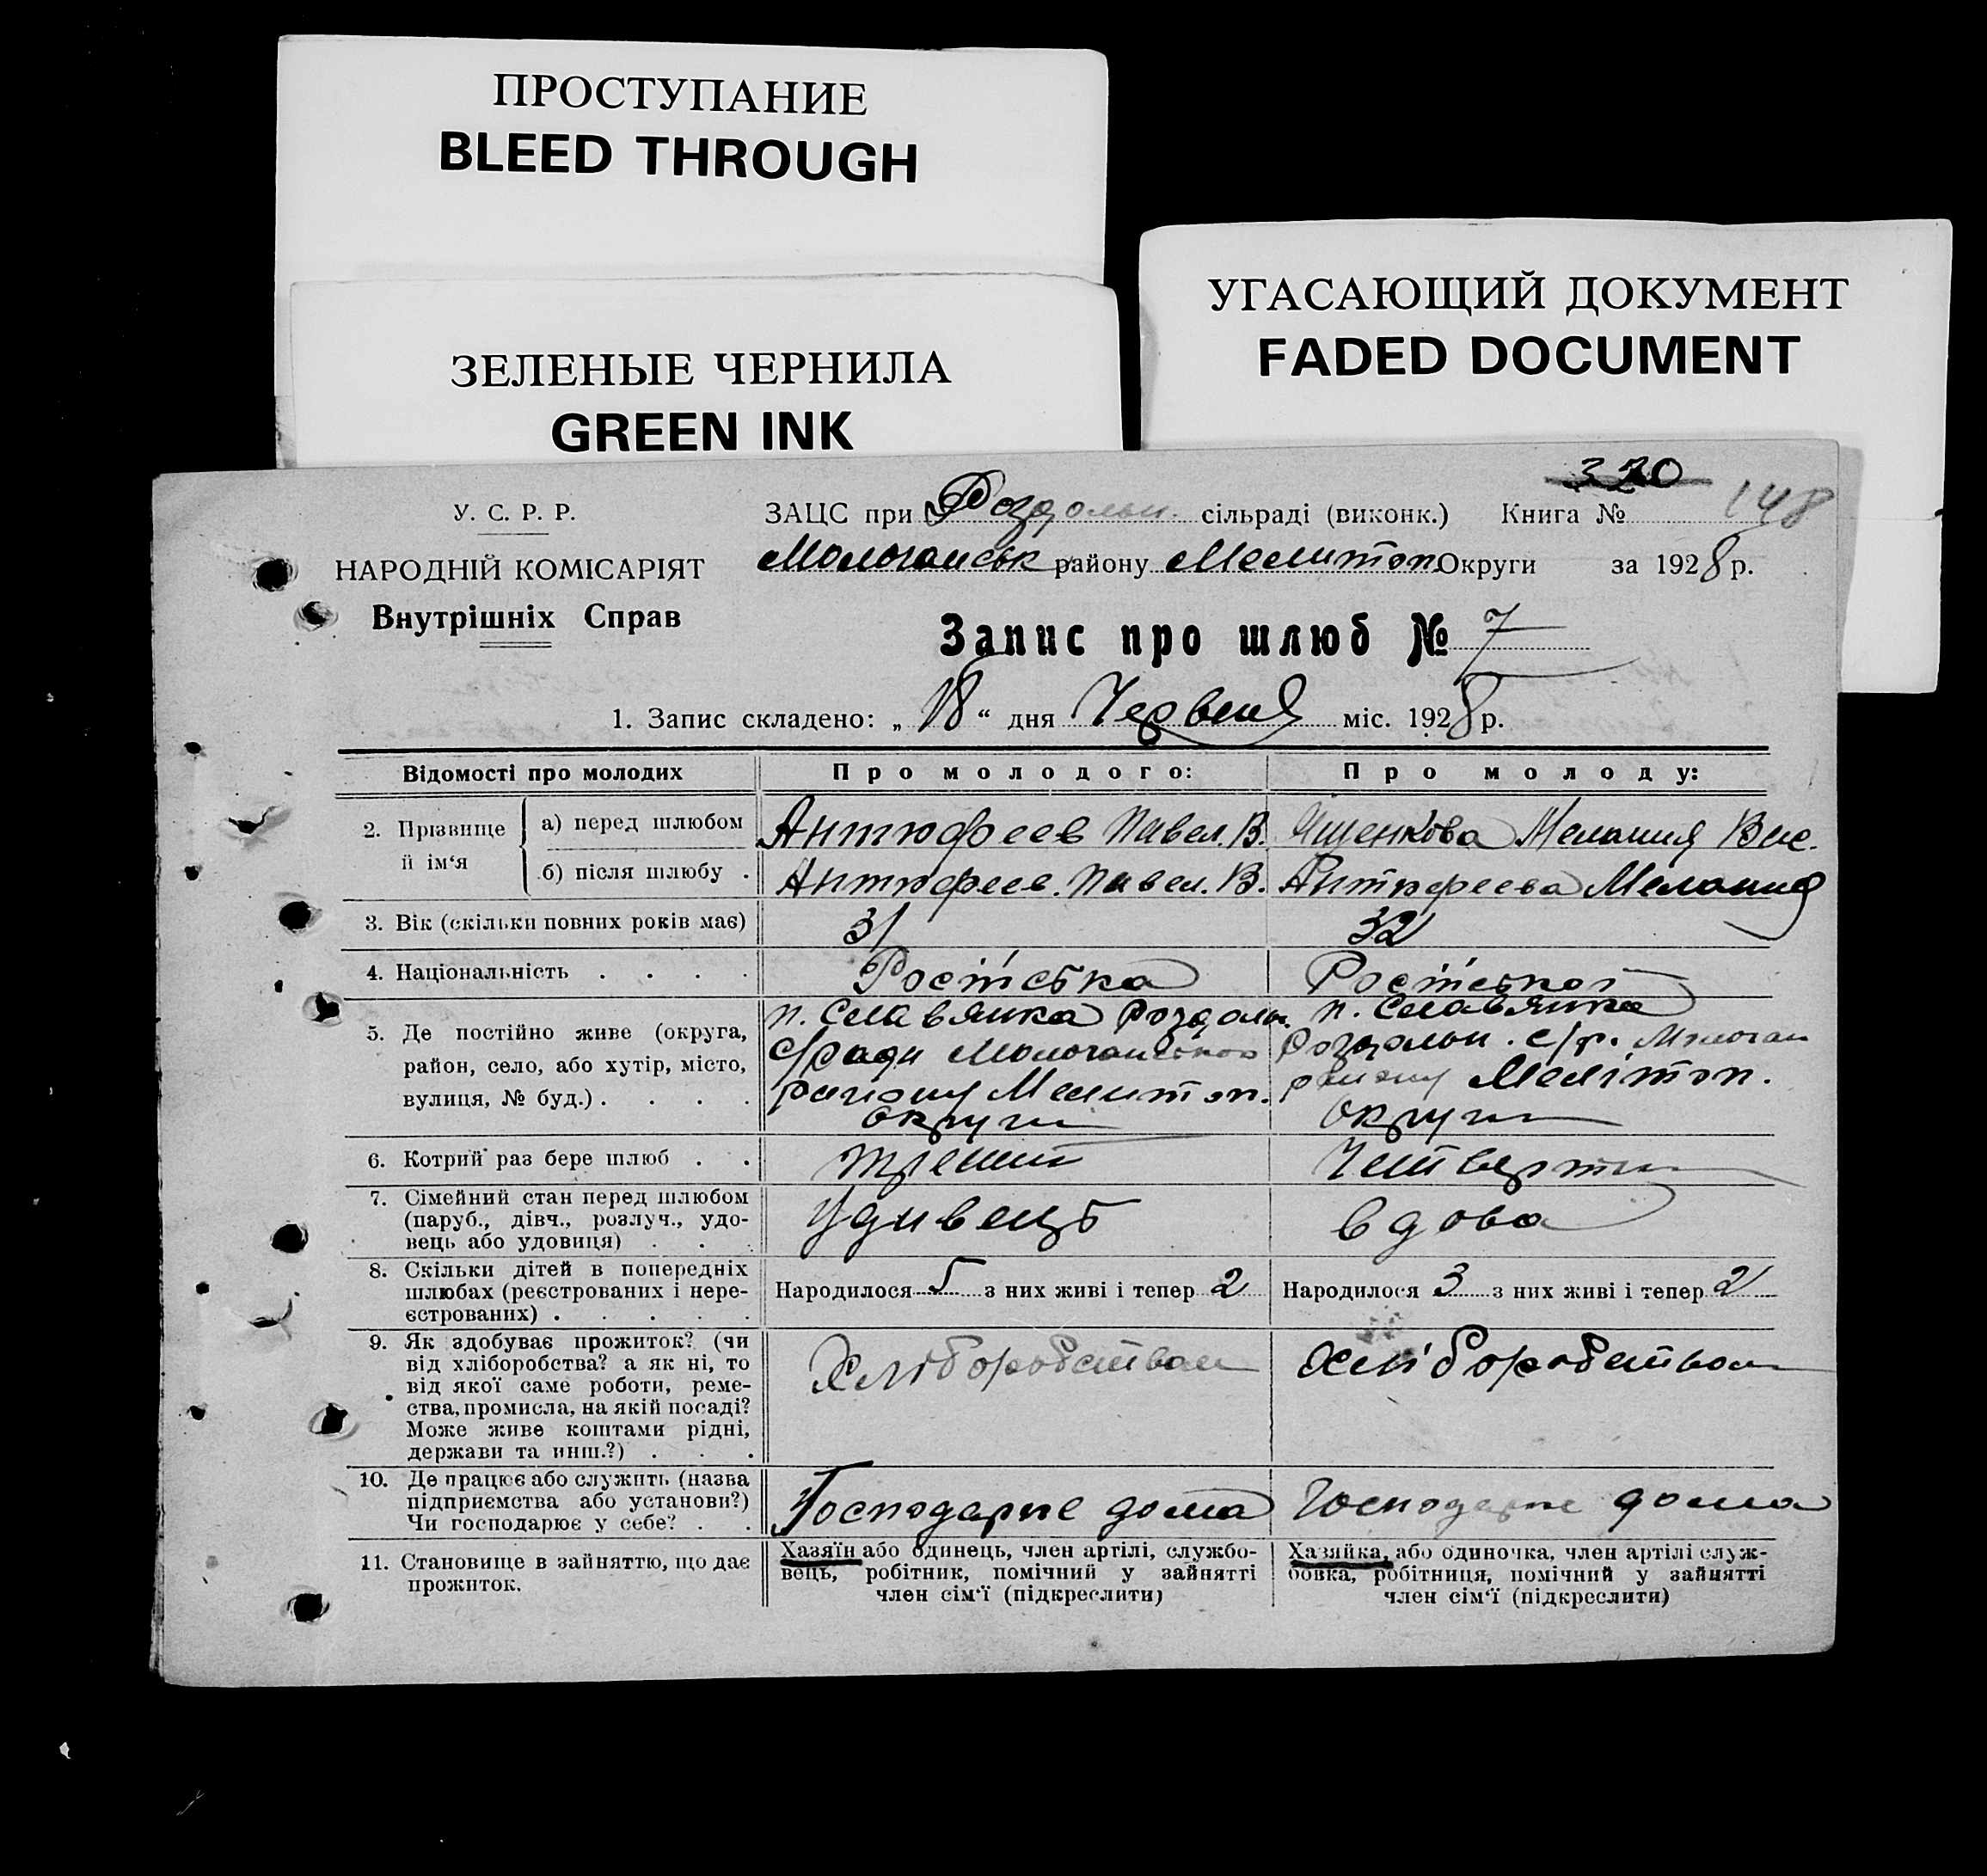 ПРОСТУПАНИЕ
BLEED THROUGH
ЗЕЛЕНЫЕ ЧЕРНИЛА
GREEN INK
УГАСАЮЩИЙ ДОКУМЕНТ
FADED DOCUMENT
320
У. С. Р. Р.
НАРОДНІЙ КОМІСАРІЯТ
Внутрішніх Справ
ЗАЦС при Роздольн. сільраді (виконк.) Книга № 148
Молочанськ району Мелитоп. Округи за 1928 р.
Запис про шлюб № 7
1. Запис складено: „18“ дня Червня міс. 1928 р.
Відомості про молодих
Про молодого:
Про молоду:
2. Прізвище й ім‘я
а) перед шлюбом
Антюфеев Павел. В.
Ященкова Мелания Вас.
б) після шлюбу .
Антюфеев. Павел. В.
Антюфеева Мелания
3. Вік (скільки повних років має)
31
32
4. Національність . . . .
Російська
Російської
5. Де постійно живе (округа,
район, село, або хутір, місто,
вулиця, № буд.) . . . .
п. Славянка Роздольн.
с/ради Молочанського
району Мелитоп.
округи
п. Славянка
Роздольн. с/р. Молочан
району Мелітоп.
округи
6. Котрий раз бере шлюб . .
третий
Четверти
7. Сімейний стан перед шлюбом
(паруб., дівч., розлуч., удо-
вець або удовиця) . . .
Удивець
вдова
8. Скільки дітей в попередніх
шлюбах (реєстрованих і нере-
єстрованих) . . . . .
Народилося 5 з них живі і тепер 2
Народилося 3 з них живі і тепер 2
9. Як здобуває прожиток? (чи
від хліборобства? а як ні, то
від якої саме роботи, реме-
ства, промисла, на якій посаді?
Може живе коштами рідні,
держави та инш.?) . . .
Хліборобством
Хліборобством
10. Де працює або служить (назва
підприємства або установи?)
Чи господарює у себе? . .
Господарне дома
Господарне дома
11. Становище в зайняттю, що дає
прожиток.
Хазяїн або одинець, член артілі, службо-
вець, робітник, помічний у зайнятті
член сім‘ї (підкреслити)
Хазяйка, або одиночка, член артілі служ-
бовка, робітниця, помічний у зайнятті
член сім‘ї (підкреслити)